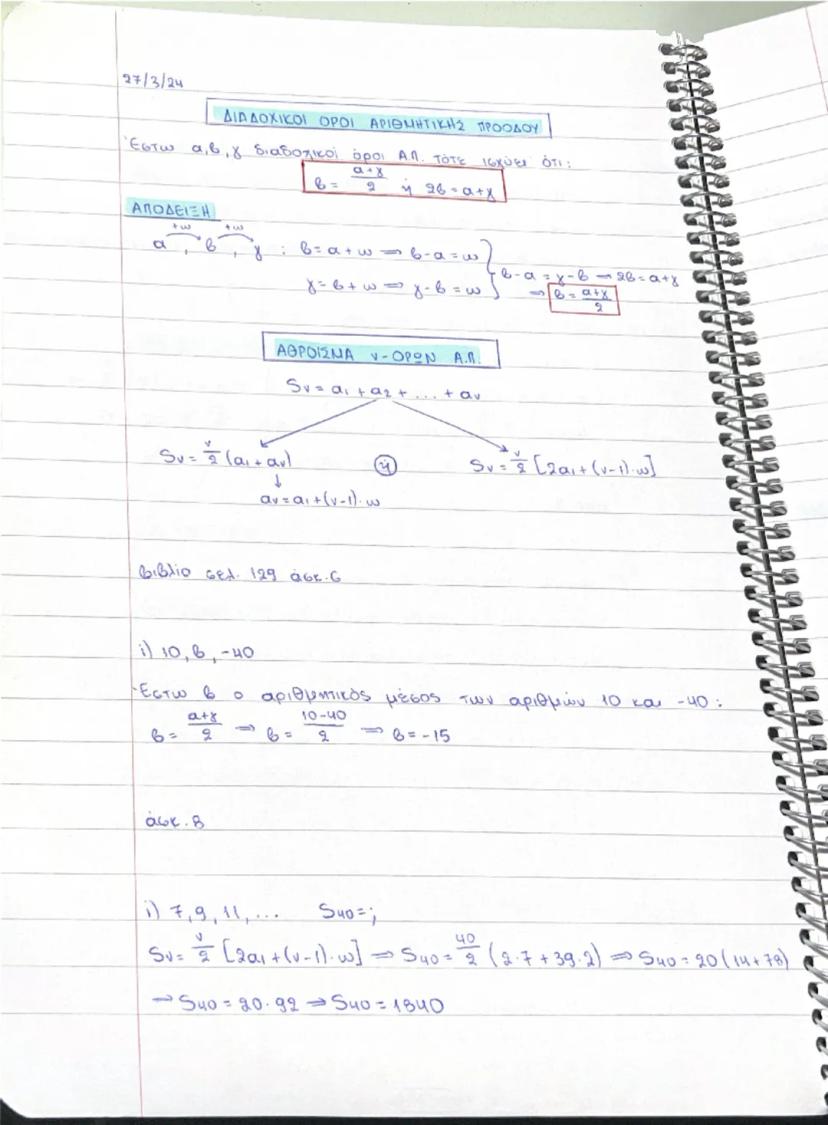 27/3/24
ΔΙΑΔΟΧΙΚΟΙ ΟΡΟΙ ΑΡΙΘΜΗΤΙΚΗΣ ΠΡΟΟΔΟΥ
Έστω α, β, γ διαδοχικοί όροι Α.Π. τότε ισχύει ότι:
β = α+γ/2 ή 2β = α+γ
ΑΠΟΔΕΙΞΗ
+ω +ω
α, β, γ : β = α + ω ⇒ β-α = ω
γ = β + ω ⇒ γ-β = ω } β-α = γ-β ⇒ 2β = α+γ
⇒ β = α+γ/2
ΑΘΡΟΙΣΜΑ ν-ΟΡΩΝ Α.Π.
Sν = α1 + α2 + ... + αν
Sν = ν/2 (α1 + αν) ή Sν = ν/2 [2α1 + (ν-1)·ω]
↓
αν = α1 + (ν-1)·ω
βιβλίο σελ. 129 άσκ. 6
i) 10, β, -40
Έστω β ο αριθμητικός μέσος των αριθμών 10 και -40:
β = α+γ/2 ⇒ β = 10-40/2 ⇒ β = -15
άσκ. 8
i) 7, 9, 11, ... S40 = ;
Sν = ν/2 [2α1 + (ν-1)·ω] ⇒ S40 = 40/2 (2·7 + 39·2) ⇒ S40 = 20(14+78)
⇒ S40 = 20·92 ⇒ S40 = 1840